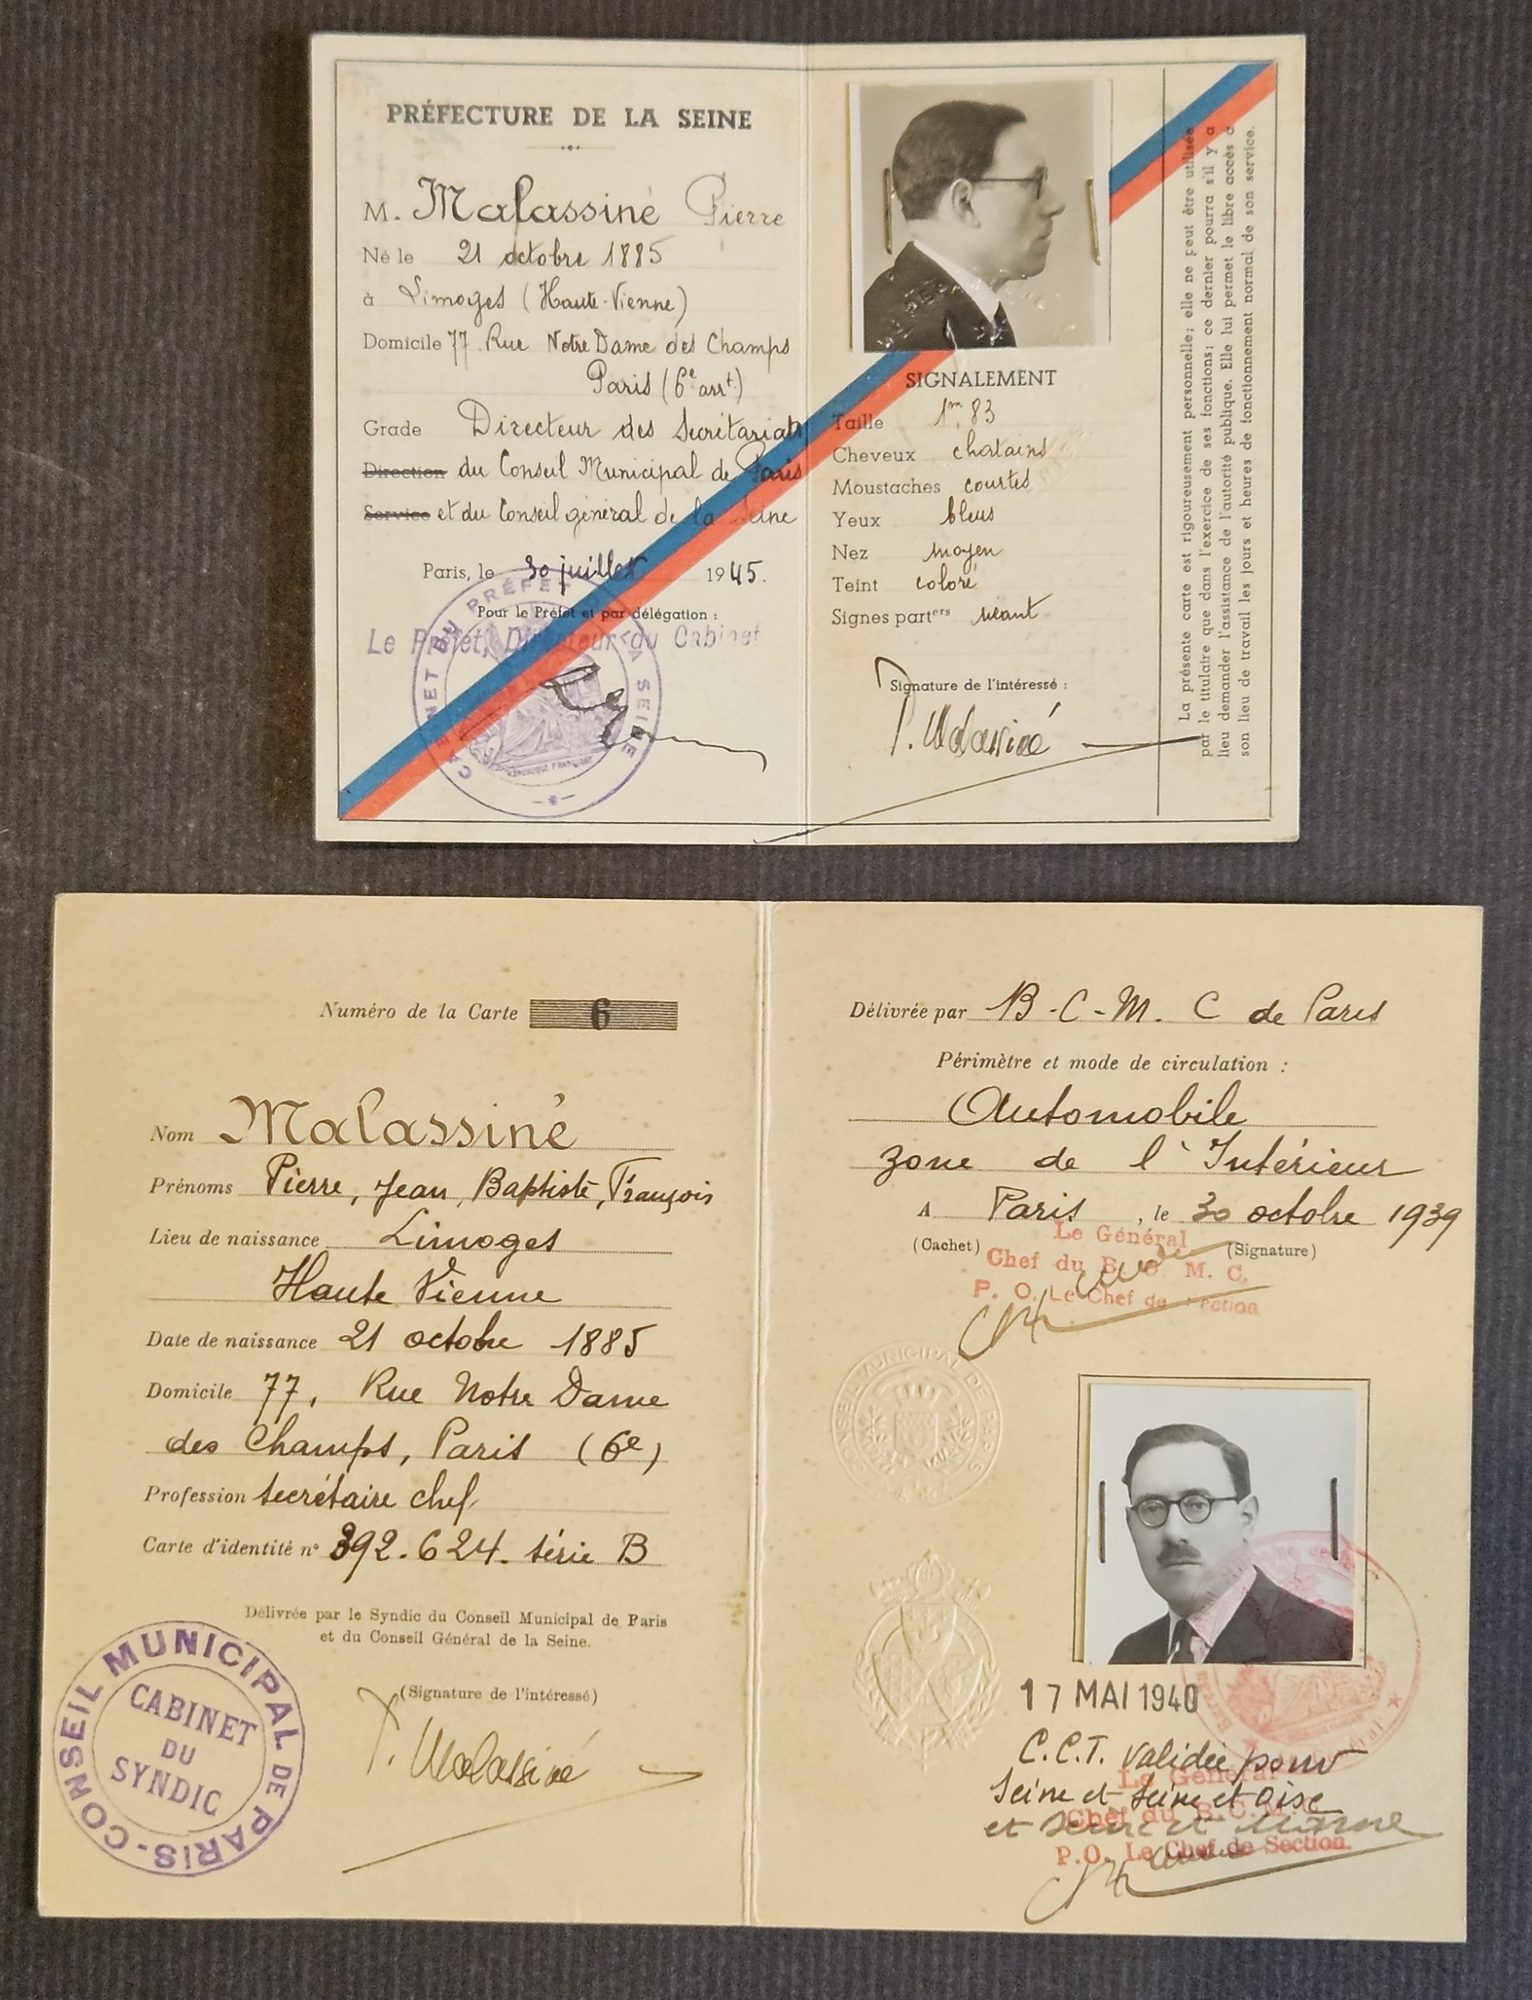 PRÉFECTURE DE LA SEINE
M. Malassiné Pierre
Né le 21 octobre 1885
à Limoges (Haute-Vienne)
Domicile 77 Rue Notre Dame des Champs
Paris (6e arrt)
Grade Directeur des Secrétariats
Direction du Conseil Municipal de Paris
Service et du Conseil général de la Seine
Paris, le 30 juillet 1945.
Pour le Préfet et par délégation :
Le Préfet, Directeur du Cabinet
CABINET DU PRÉFET SEINE
RÉPUBLIQUE FRANÇAISE
SIGNALEMENT
Taille 1m.83
Cheveux chatains
Moustaches courtes
Yeux bleus
Nez moyen
Teint coloré
Signes parters néant
Signature de l'intéressé :
P. Malassiné
La présente carte est rigoureusement personnelle; elle ne peut être utilisée
par le titulaire que dans l'exercice de ses fonctions; ce dernier pourra s'il y a
lieu demander l'assistance de l'autorité publique. Elle lui permet le libre accès à
son lieu de travail les jours et heures de fonctionnement normal de son service.
Numéro de la Carte 6
Nom Malassiné
Prénoms Pierre, Jean, Baptiste, François
Lieu de naissance Limoges
Haute Vienne
Date de naissance 21 octobre 1885
Domicile 77, Rue Notre Dame
des Champs, Paris (6e)
Profession secrétaire chef
Carte d'identité n° 392.624. série B
Délivrée par le Syndic du Conseil Municipal de Paris
et du Conseil Général de la Seine.
(Signature de l'intéressé)
P. Malassiné
CONSEIL MUNICIPAL DE PARIS
CABINET
DU
SYNDIC
Délivrée par B-C-M. C de Paris
Périmètre et mode de circulation :
Automobile
zone de l'Intérieur
A Paris, le 30 octobre 1939
(Cachet) (Signature)
Le Général
Chef du B. C. M. C.
P. O. Le Chef de Section
CONSEIL MUNICIPAL DE PARIS
17 MAI 1940
C.C.T. validée pour
Seine et Seine et Oise
et Seine et Marne
Le Général
Chef du B.C.M.C.
P.O. Le Chef de Section